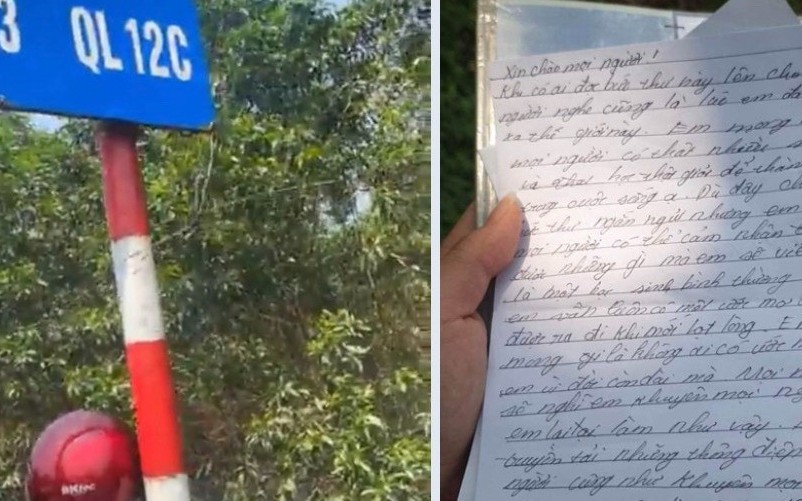 3 QL 12C
BKtec
Xin chào mọi người!
Khi có ai đọc bức thư này lên cho
người nghe cũng là lúc em đã
ra thế giới này. Em mong
mọi người có thật nhiều
và khai học thật giỏi để thàn
trong cuộc sống ạ. Dù đây ch
bức thư ngắn ngủi nhưng em
mọi người có thể cảm nhận
được những gì mà em sẽ viế
là một học sinh bình thường
em vẫn luôn có một ước mơ
được ra đi khi mới lọt lòng. E
mong gì là không ai có ước m
em vì đời còn dài mà. Mọi n
sẽ nghĩ em khuyên mọi ng
em lại tại làm như vậy.
truyền tải những thông điệp
người cũng như khuyên mọi